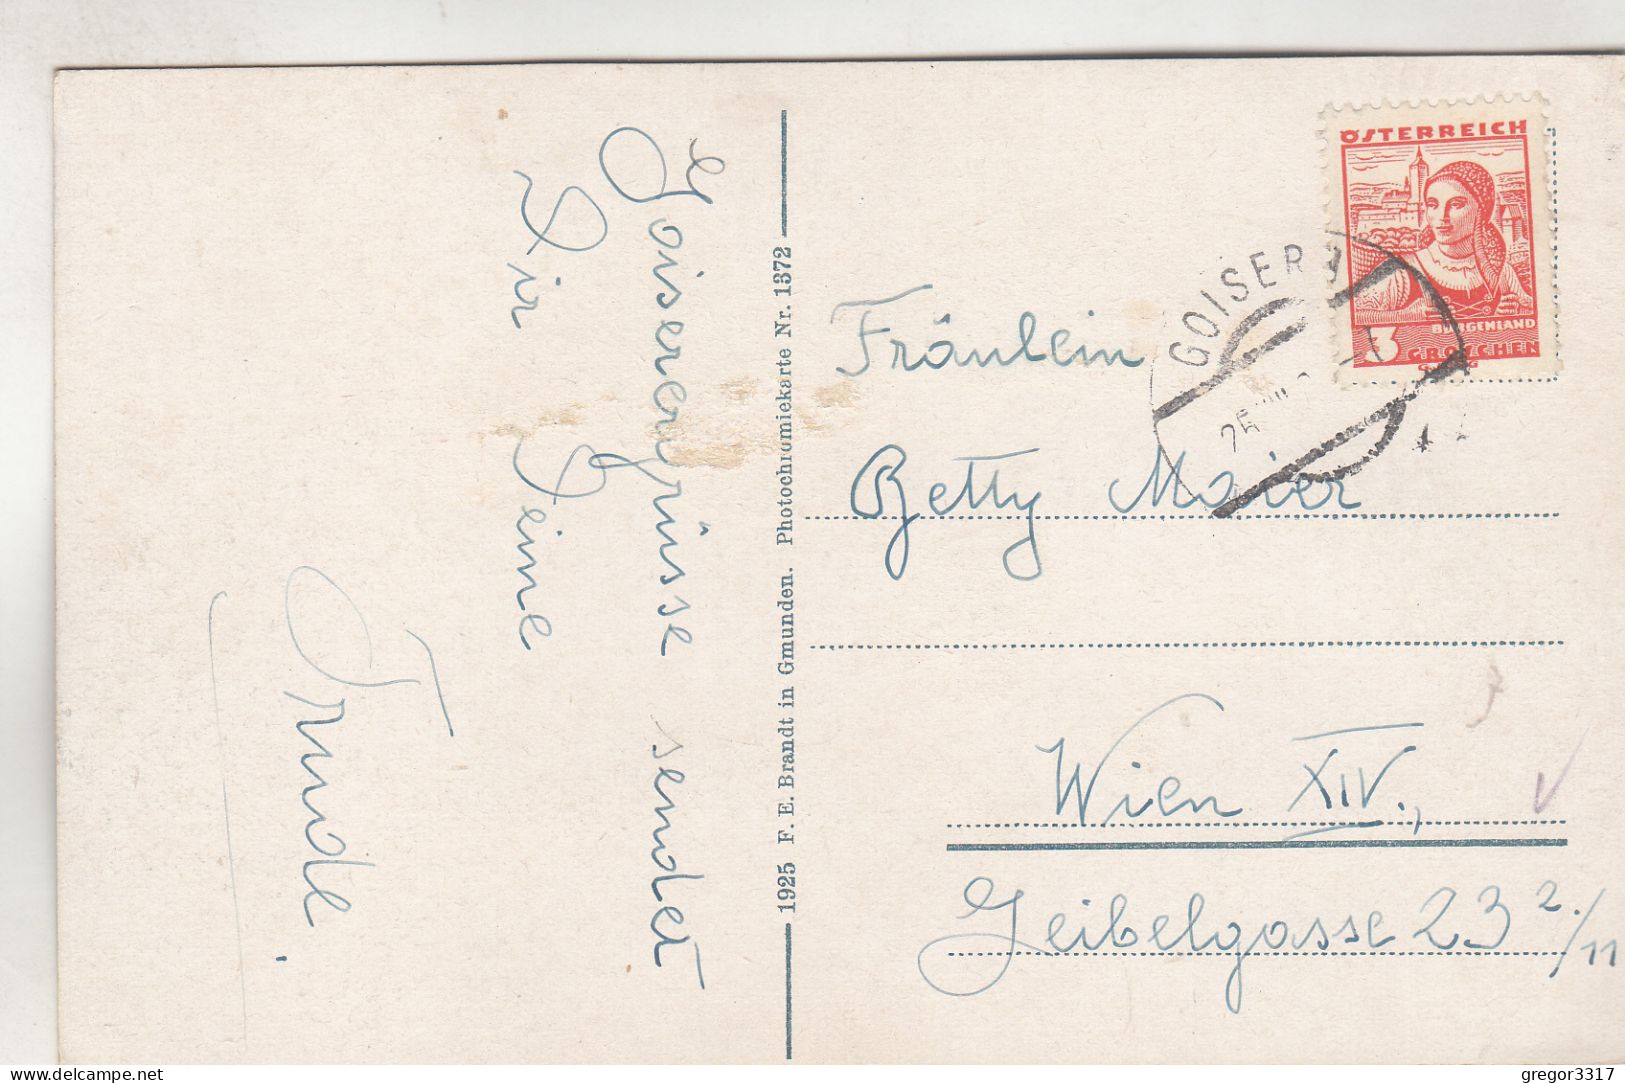 Goiserergrüsse sendet
Dir Deine
Trude.
1925 F. E. Brandt in Gmunden. Photochromiekarte Nr. 1372
ÖSTERREICH
BURGENLAND
3 GROSCHEN
GOISERN
25
Fräulein
Betty Maier
Wien XIV.,
Geibelgasse 23 2./11
gregor3317